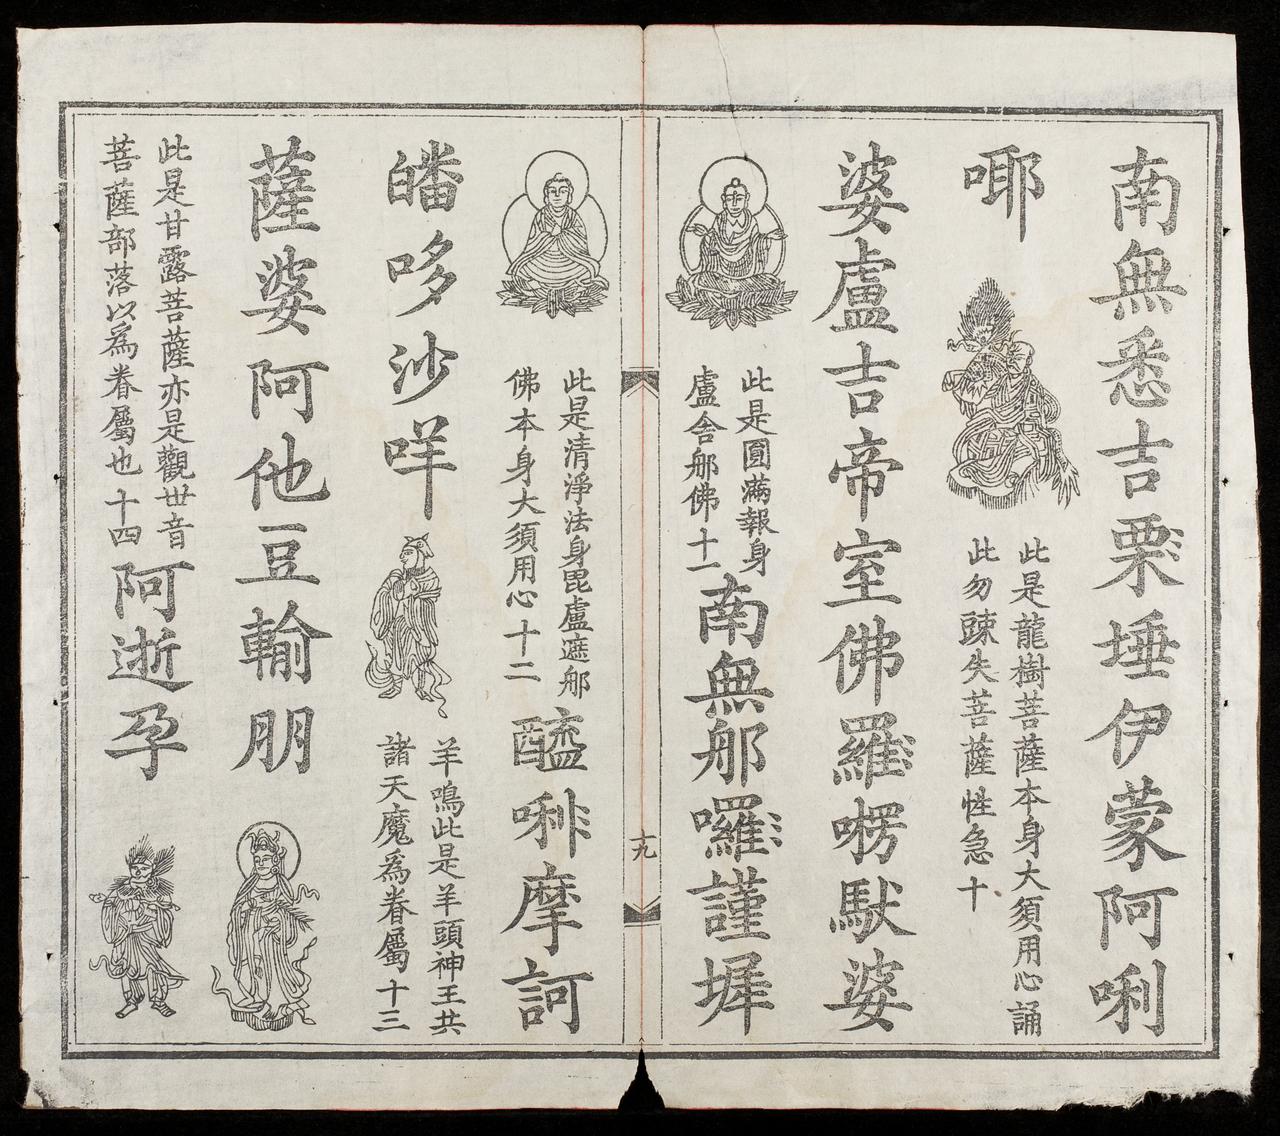 南無悉吉栗埵伊蒙阿唎
耶
此是龍樹菩薩本身大須用心誦
此勿踈失菩薩性急十
婆盧吉帝室佛羅楞馱婆
此是圓滿報身
盧舍那佛十一
南無那囉謹墀
十九
此是清淨法身毘盧遮那
佛本身大須用心十二
醯唎摩訶
皤哆沙咩
羊鳴此是羊頭神王共
諸天魔爲眷屬十三
薩婆阿他豆輸朋
此是甘露菩薩亦是觀世音
菩薩部落以爲眷屬也十四
阿逝孕